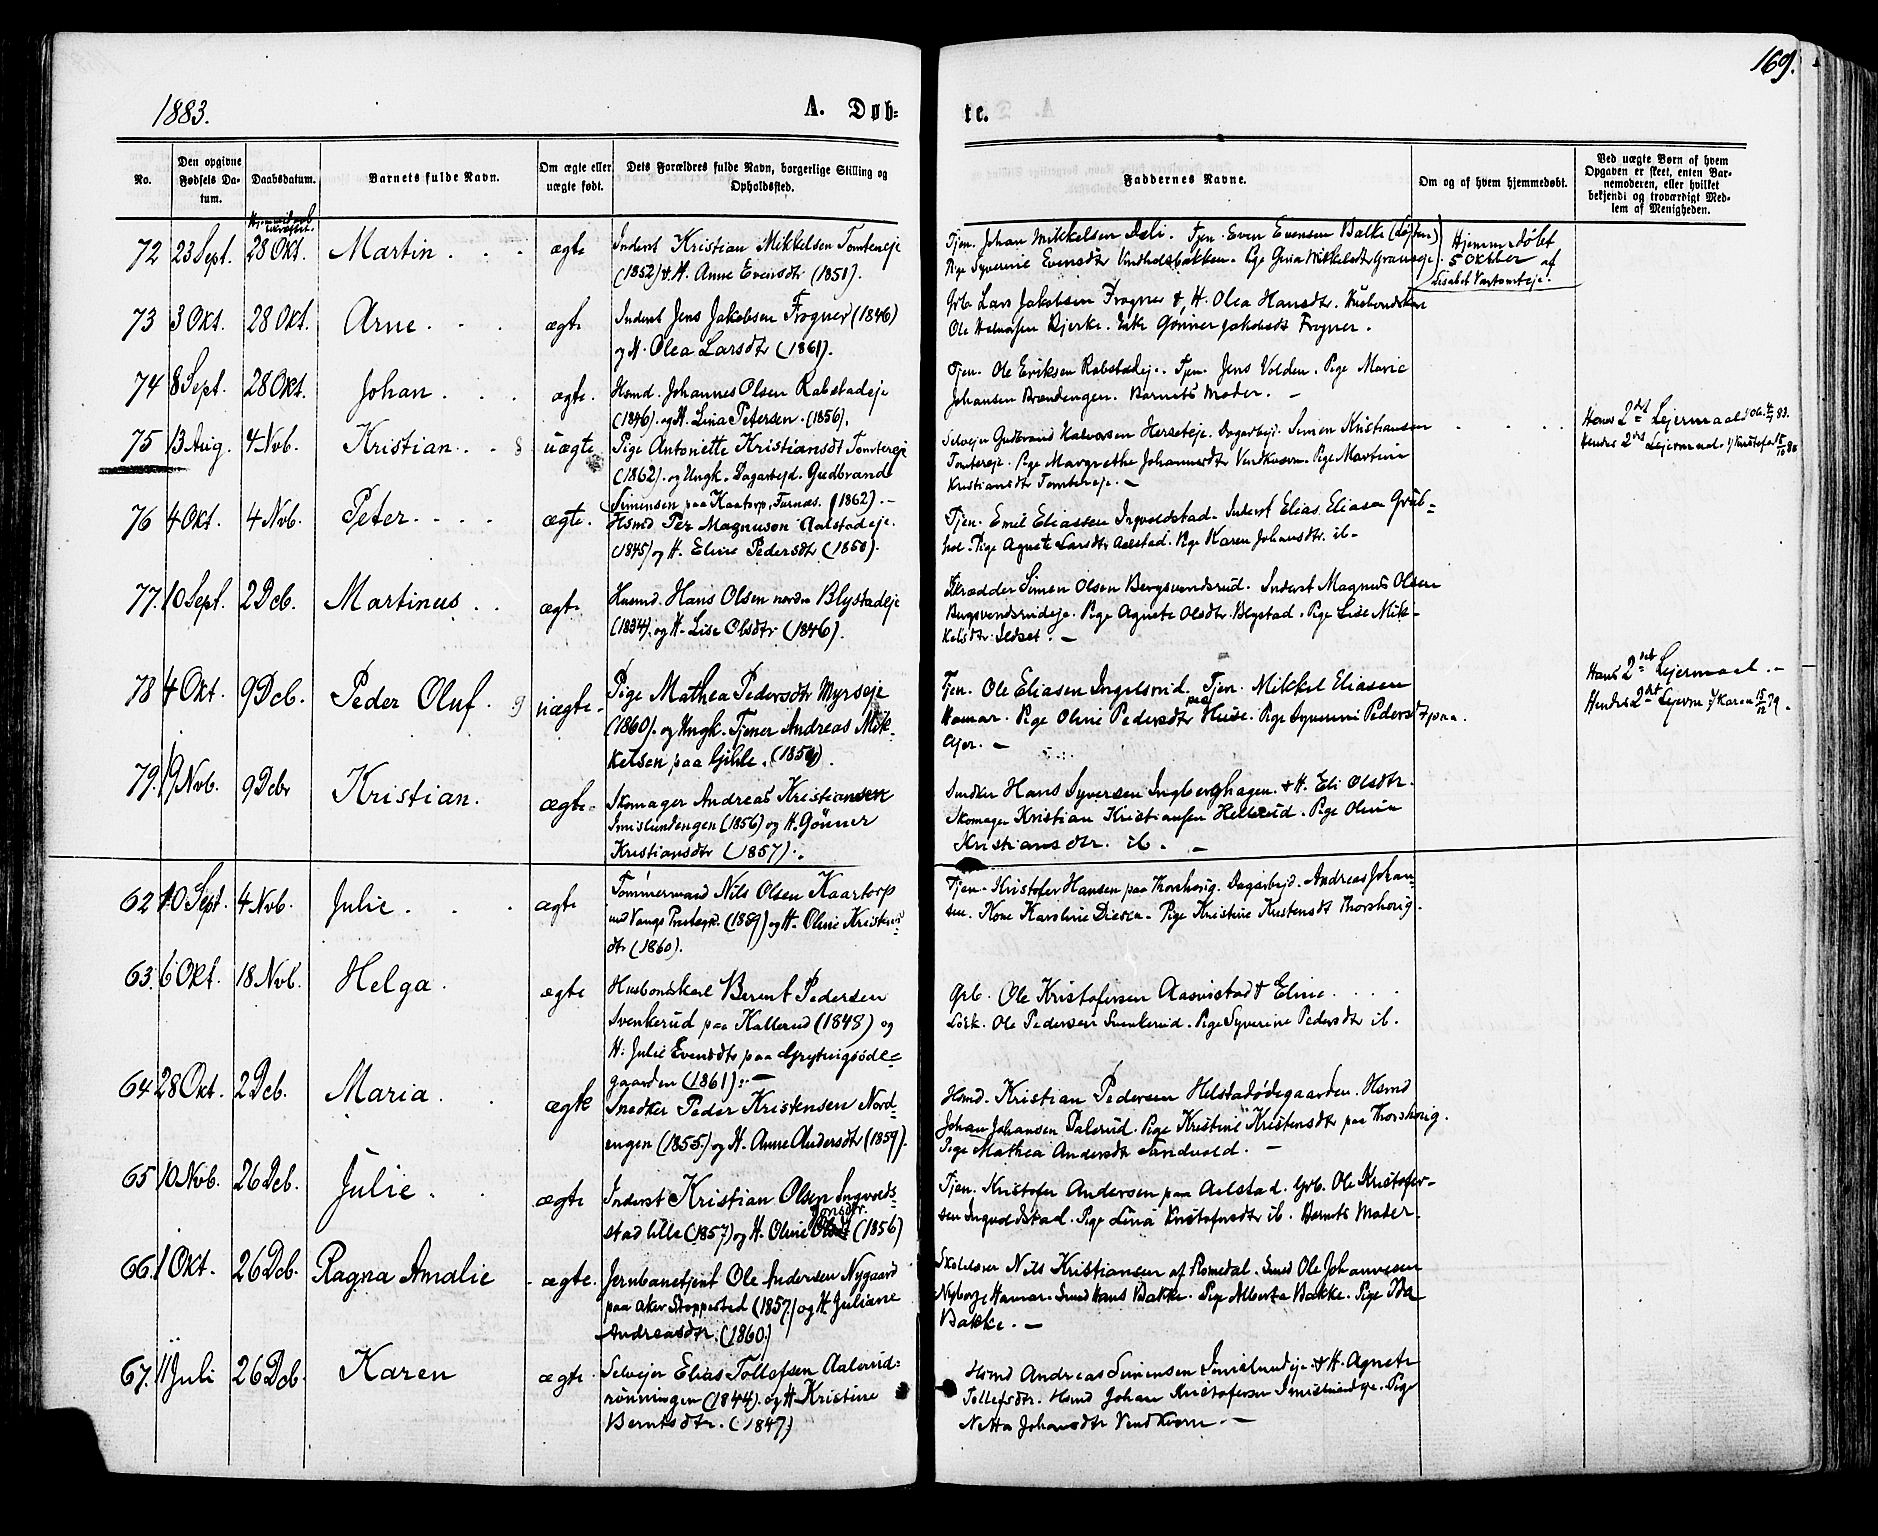 169.
1883.
A. Døb=
te.
No.
Den opgivne Fødsels Da-
tum.
Daabsdatum.
Barnets fulde Navn.
Om ægte eller
uægte født.
Dets Forældres fulde Navn, borgerlige Stilling og
Opholdssted.
Faddernes Navne.
Om og af hvem hjemmedøbt.
Ved uægte Børn af hvem
Opgaven er skeet, enten Bar-
nemoderen, eller hvilket
bekjendt og troværdigt Med-
lem af Menigheden.
72 23 Sept. 28 Okt. Martin. ægte Inderst Kristian Mikkelsen Tomtereje
(1852) & H. Anne Evensdtr (1851).
Tjen. Johan Mikkelsen Dæli. Tjen. Even Evensen Balke
Pige Syverine Evensdtr
Hjemmedøbt
5 Oktber af
73 3 Okt. 28 Okt. Arne. ægte Inderst Jens Jakobsen Frogner (1846)
og H. Olea Larsdtr (1861).
Grb. Lars Jakobsen Frogner & H. Olea Hansdtr.
Ole Halvorsen Bjerke. Enke Gønner Jakobsdt Frogner.
74 8 Sept. 28 Okt. Johan. ægte. Hsmd. Johannes Olsen Rabstadeje
(1846). og H. Lina Petersen. (1856).
Tjen. Ole Eriksen Rabstadej. Tjen. Jens Volden. Pige Marie
Johansen Brændengen. Barnets Moder. —
75 13 Aug. 4 Nvb. Kristian. uægte Pige Antonette Kristiansdt Tomtereje
(1862). og Ungk. Dagarbejd. Gudbrand
Simensen paa Kaatorp, Furnæs. (1862). —
Selvejer Gudbrand Halvorsen Herseteje. Dagarbejd. Simen Kristiansen
Tomtereje. Pige Margrethe Johannesdtr Vendkværn. Pige Martine
Kristiansdtr Tomtereje. —
Hans 2det Lejermaal
Hendes 2det Lejermaal
76 4 Okt. 4 Nvb. Peter. ægte. Hsmd Per Magnuson Aalstadeje.
(1845) og H. Eline Pedersdtr (1850).
Tjen. Emil Eliassen Ingvoldstad. Inderst Elias Eliasen Grøb=
hol. Pige Agnete Larsdtr Aalstad. Pige Karen Johansdtr. ib. —
77. 10 Sept. 2 Dcb. Martinus. ægte. Husmd. Hans Olsen nordre Blystadeje
(1834). og H. Lise Olsdtr (1846).
Skrædder Simen Olsen Bergsvendsrud. Inderst Magnus Olsen
Bergsvendsrudeje. Pige Agnete Olsdtr Blystad. Pige Lise Mik-
kelsdtr Ildset. —
78 4 Okt. 9 Dcb. Peder Oluf. uægte. Pige Mathea Pedersdtr Myrseje
(1860). og Ungk. Tjener Andreas Mik-
kelsen paa Gihle.
Tjen. Ole Eliasen Ingelsrud. Tjen. Mikkel Eliasen
Hamar. Pige Oline Pedersdtr paa Huse. Pige Syverine Pedersdt paa
Ajer. —
Hans 2det Lejermaal. —
Hendes 2det Lejerm. 1/ Karen 15/12 79.
79. 19 Nvb. 9 Dcbr Kristian. ægte. Skomager Andreas Kristiansen
Imislundengen (1856) og H. Gønner
Kristiansdtr (1857).
Snedker Hans Syversen Ingeberghagen. & H. Eli Olsdtr.
Skomager Kristian Kristiansen Hellerud. Pige Oline
Kristiansdtr. ib. —
62 10 Sept. 4 Nvb. Julie. ægte Tømmermand Nils Olsen Kaatorp
ved Vangs Prestegd. og H. Oline Kristens=
dtr (1860).
Tjen. Kristofer Hansen paa Thorshorig. Dagarbejd. Andreas Johan=
sen. Kone Karoline Diesen. Pige Kristine Kristensdt Thorshorig.
63. 6 Okt. 18 Nvb. Helga. ægte Husbondskarl Bernt Pedersen
Svenkerud paa Kallerud (1848) og
H. Julie Evensdtr paa Grytingsøde=
gaarden (1861). —
Grb. Ole Kristofersen Aasvistad & Eline.
Ole Pedersen Svenkerud. Pige Syverine Pedersdtr ib.
64 28 Okt. 2 Dcb. Maria. ægte Snedker Peder Kristensen Nord=
engen (1855) og H. Anne Andersdtr (1859).
Hsmd. Kristian Pedersen Helstadødegaarden. Hsmd
Johan Johansen Dalerud. Pige Kristine Kristensdtr paa Thorshorig.
Pige Mathea Andersdtr Sandvold. —
65 10 Nvb. 26 Dcb. Julie. ægte Inderst Kristian Olsen Ingvolds-
stad lille (1857) og H. Oline (1856)
Tjen. Kristofer Andersen paa Aalstad. Grb. Ole Kristofer-
sen Ingvoldstad. Pige Lina Kristofersdtr ib. Barnets Moder.
66. 1 Okt. 26 Dcb. Ragna Amalie ægte. Jernbanetjent Ole Andersen Nygaard
paa Aker Stoppested (1857) og H. Juliane
Andreasdtr. (1860)
Skolelærer Nils Kristiansen af Romedal. Smed Ole Johannesen
Nyborg, Hamar. Smed Hans Bakke. Pige Alberta Bakke. Pige Ida
Bakke. —
67. 11 Juli 26 Dcb. Karen ægte. Selvejer Elias Tollefsen Aalerud=
rønningen (1844). og H. Kristine
Berntsdtr. (1847)
Hsmd Andreas Simensen Imislundeje. & H. Agnete
Tollefsdtr. Hsmd Johan Kristofersen Imislundeje. Pige
Netta Johansdtr Vendkværn. —